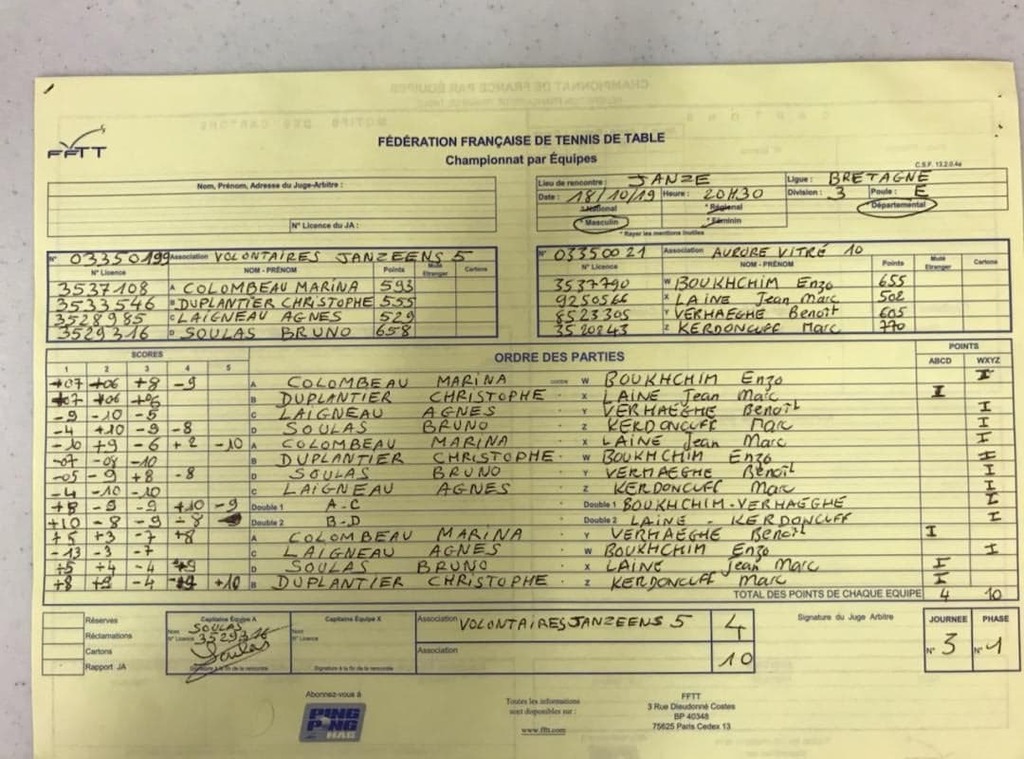 FFTT
FÉDÉRATION FRANÇAISE DE TENNIS DE TABLE
Championnat par Équipes
C.S.F. 13.2.0.4a
Nom, Prénom, Adresse du Juge-Arbitre :
N° Licence du JA :
Lieu de rencontre : JANZE Ligue : BRETAGNE
Date : 18/10/19 Heure : 20H30 Division : 3 Poule : E
* National * Régional * Départemental
* Masculin * Féminin
* Rayer les mentions inutiles
N° 03350199 Association VOLONTAIRES JANZEENS 5
N° Licence NOM - PRÉNOM Points Muté Etranger Cartons
3537108 A COLOMBEAU MARINA 593
3533546 B DUPLANTIER CHRISTOPHE 555
3528985 C LAIGNEAU AGNES 529
3529316 D SOULAS BRUNO 658
N° 03350021 Association AURORE VITRÉ 10
N° Licence NOM - PRÉNOM Points Muté Etranger Cartons
3537790 W BOUKHCHIM Enzo 655
9250566 X LAINE Jean Marc 502
8523305 Y VERHAEGHE Benoit 605
3520243 Z KERDONCUFF Marc 770
SCORES ORDRE DES PARTIES POINTS
1 2 3 4 5 ABCD WXYZ
+07 +06 +8 -9 A COLOMBEAU MARINA contre W BOUKHCHIM Enzo I
+07 +06 +06 B DUPLANTIER CHRISTOPHE - X LAINE Jean Marc I
-9 -10 -5 C LAIGNEAU AGNES - Y VERHAEGHE Benoit I
-4 +10 -9 -8 D SOULAS BRUNO - Z KERDONCUFF Marc I
-10 +9 -6 +2 -10 A COLOMBEAU MARINA - X LAINE Jean Marc I
-07 -08 -10 B DUPLANTIER CHRISTOPHE - W BOUKHCHIM Enzo I
-05 -9 +8 -8 D SOULAS BRUNO - Y VERHAEGHE Benoit I
-4 -10 -10 C LAIGNEAU AGNES - Z KERDONCUFF Marc I
+8 -9 -9 +10 -9 Double 1 A-C Double 1 BOUKHCHIM-VERHAEGHE I
+10 -8 -9 -8 Double 2 B-D Double 2 LAINE - KERDONCUFF I
+5 +3 -7 +8 A COLOMBEAU MARINA - Y VERHAEGHE Benoit I
-13 -3 -7 C LAIGNEAU AGNES - W BOUKHCHIM Enzo I
+5 +4 -4 D SOULAS BRUNO - X LAINE Jean Marc I
+8 +9 -4 +10 B DUPLANTIER CHRISTOPHE - Z KERDONCUFF Marc I
TOTAL DES POINTS DE CHAQUE EQUIPE 4 10
Réserves
Réclamations
Cartons
Rapport JA
Capitaine Équipe A
Nom SOULAS
N° Licence 3529316
Soulas
Signature à la fin de la rencontre
Capitaine Équipe X
Nom
N° Licence
Signature à la fin de la rencontre
Association VOLONTAIRES JANZEENS 5 4
Association 10
Signature du Juge Arbitre
JOURNEE PHASE
N° 3 N° 1
Abonnez-vous à
PING PONG MAG
Toutes les informations
sont disponibles sur :
www.fftt.com
FFTT
3 Rue Dieudonné Costes
BP 40348
75625 Paris Cedex 13